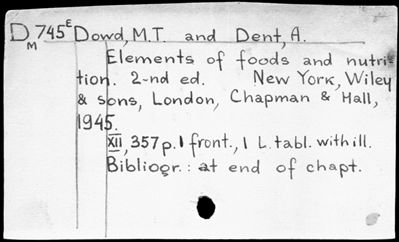 D M 745 E Dowd, M.T. and Dent, A.
Elements of foods and nutri-
tion. 2-nd ed. New York, Wiley
& sons, London, Chapman & Hall,
1945.
XII, 357 p. 1 front., 1 L. tabl. with ill.
Bibliogr.: at end of chapt.